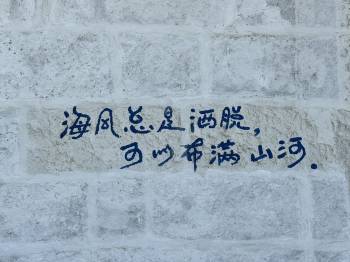 海风总是洒脱，
可以布满山河.